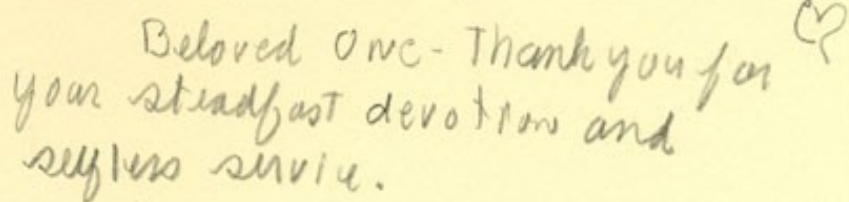 Beloved One - Thank you for
your steadfast devotion and
selfless service.